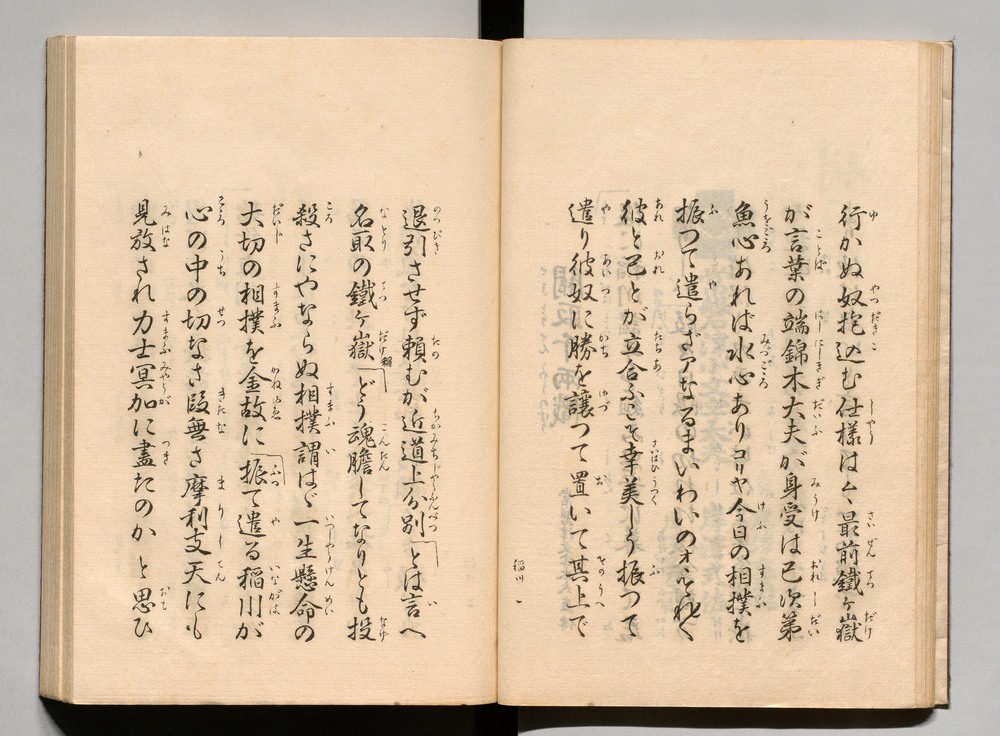 行かぬ奴抱込む仕様はムヽ最前鐵ヶ嶽
が言葉の端錦木大夫が身受は己次第
魚心あれば水心ありコリヤ今日の相撲を
振つて遣らざアなるまいわいのオヽそれ〳〵
彼と己とが立合ふこそ幸美しう振つて
遣り彼奴に勝を讓つて置いて其上で
稲川 一
退引させず頼むが近道上分別とは言へ
名取の鐵ヶ嶽どう魂膽してなりとも投
殺さにやならぬ相撲謂はゞ一生懸命の
大切の相撲を金故に振て遣る稲川が
心の中の切なさ段無さ摩利支天にも
見放され力士冥加に盡たのか と思ひ